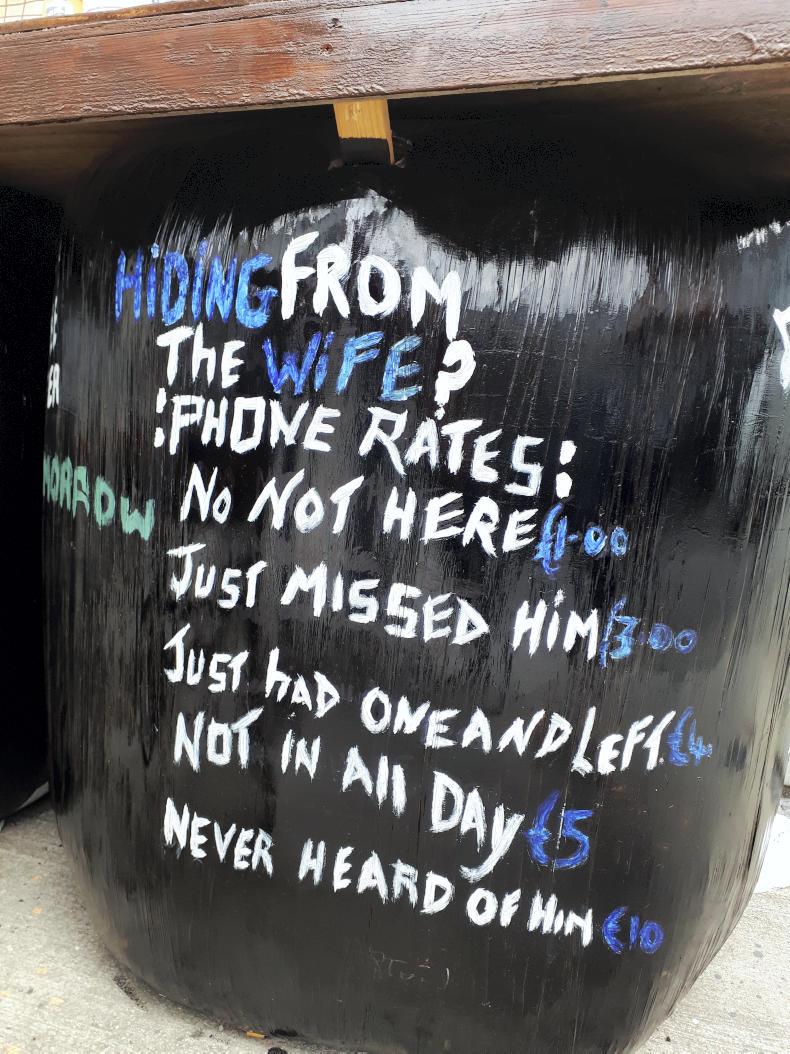 HiDiNG FROM
The WiFE?
:PHONE RATES:
No NOT HERE €1.00
JUST MISSED HiM €3.00
JUST hAD ONE AND LEFT. €4
NOT IN All DAy €5
NEVER HEARD OF HIM €10
ER
MORROW